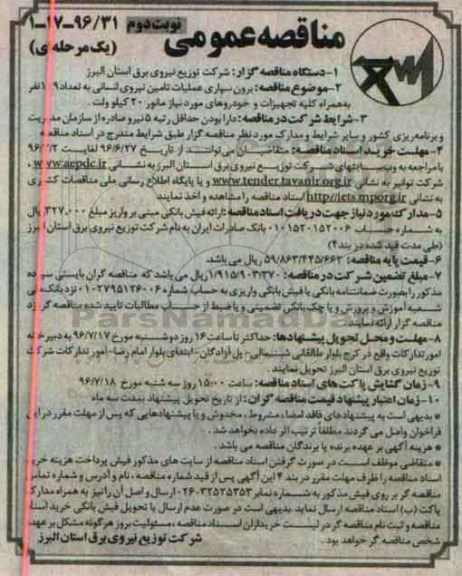 نوبت دوم ۹۶/۳۱-۱۷-۱
مناقصه عمومی
(یک مرحله ای)
۱-دستگاه مناقصه گزار: شرکت توزیع نیروی برق استان البرز
۲-موضوع مناقصه: برون سپاری عملیات تامین نیروی انسانی به تعداد نفر
به همراه کلیه تجهیزات و خودروهای مورد نیاز مانور ۲۰ کیلو ولت.
۳-شرایط شرکت در مناقصه: دارا بودن حداقل رتبه ۵ نیرو صادره از سازمان مدیریت
و برنامه ریزی کشور و سایر شرایط و مدارک مورد نظر مناقصه گزار طبق شرایط مندرج در اسناد مناقصه
۴-مهلت خرید اسناد مناقصه: متقاضیان می توانند از تاریخ ۹۶/۶/۲۷ لغایت
با مراجعه به وب سایتهای شرکت توزیع نیروی برق استان البرز به نشانی www.aepdc.ir،
شرکت توانیر به نشانی www.tender.tavanir.org.ir و یا پایگاه اطلاع رسانی ملی مناقصات کشوری
به نشانی http://iets.mporg.ir اسناد مناقصه را مشاهده و اخذ نمایند
۵-مدارک مورد نیاز جهت دریافت اسناد مناقصه: ارائه فیش بانکی مبنی بر واریز مبلغ ۳۲۷،۰۰۰ ریال
به شماره حساب ۰۱۰۱۵۲۰۱۵۲۰۰۶ بانک صادرات ایران به نام شرکت توزیع نیروی برق استان البرز
(طی مدت قید شده در بند۴)
۶-قیمت پایه مناقصه: ۵۹/۸۶۳/۴۲۵/۶۶۲ ریال می باشد.
۷-مبلغ تضمین شرکت در مناقصه: ۱/۹۱۵/۹۰۳/۳۷۰ ریال می باشد که مناقصه گران بایستی سپرده
مذکور را بصورت ضمانتنامه بانکی یا فیش بانکی واریزی به حساب شماره ۰۱۰۲۷۹۵۱۲۶۰۰۶ نزد بانک ملی
شعبه آموزش و پرورش و یا چک بانکی تضمینی و یا ضبط از حساب مطالبات تایید شده مناقصه گر نزد
مناقصه گزار ارائه نمایند.
۸-مهلت و محل تحویل پیشنهادها: حداکثر تا ساعت ۱۶ روز دوشنبه مورخ ۹۶/۷/۱۷ به دبیرخانه
امور تدارکات واقع در کرج بلوار طالقانی شمالی- پل آزادگان- ابتدای بلوار امام رضا- امور تدارکات شرکت
توزیع نیروی برق استان البرز تحویل نمایند.
۹-زمان گشایش پاکت های اسناد مناقصه: ساعت ۱۵:۰۰ روز سه شنبه مورخ ۹۶/۷/۱۸
۱۰-زمان اعتبار پیشنهاد قیمت مناقصه گران: از تاریخ تحویل پیشنهاد بمدت سه ماه
* بدیهی است به پیشنهادهای فاقد امضاء، مشروط، مخدوش و یا پیشنهادهایی که پس از مهلت مقرر در این
فراخوان واصل می گردند مطلقا ترتیب اثر داده نخواهد شد.
* هزینه آگهی بر عهده برنده یا برندگان مناقصه می باشد.
* متقاضی موظف است در صورت گرفتن اسناد مناقصه از سایت های مذکور فیش پرداخت هزینه خرید
اسناد مناقصه را ظرف مهلت مقرر در بند ۴ این آگهی پس از قید شماره مناقصه، نام و آدرس و شماره تماس
مناقصه گر بر روی فیش مذکور به شماره نمابر ۳۲۵۲۵۳۵۳-۰۲۶ ارسال و اصل آن را نیز به همراه مدارک
پاکت (ب) اسناد مناقصه ارسال نماید. بدیهی است در صورت عدم ارسال یا تحویل فیش بانکی خرید اسناد
مناقصه و ثبت نام مناقصه گر در لیست خریداران اسناد مناقصه، مسئولیت بروز هرگونه مشکل بر عهده
شخص مناقصه گر خواهد بود.
شرکت توزیع نیروی برق استان البرز
ParsNamadData